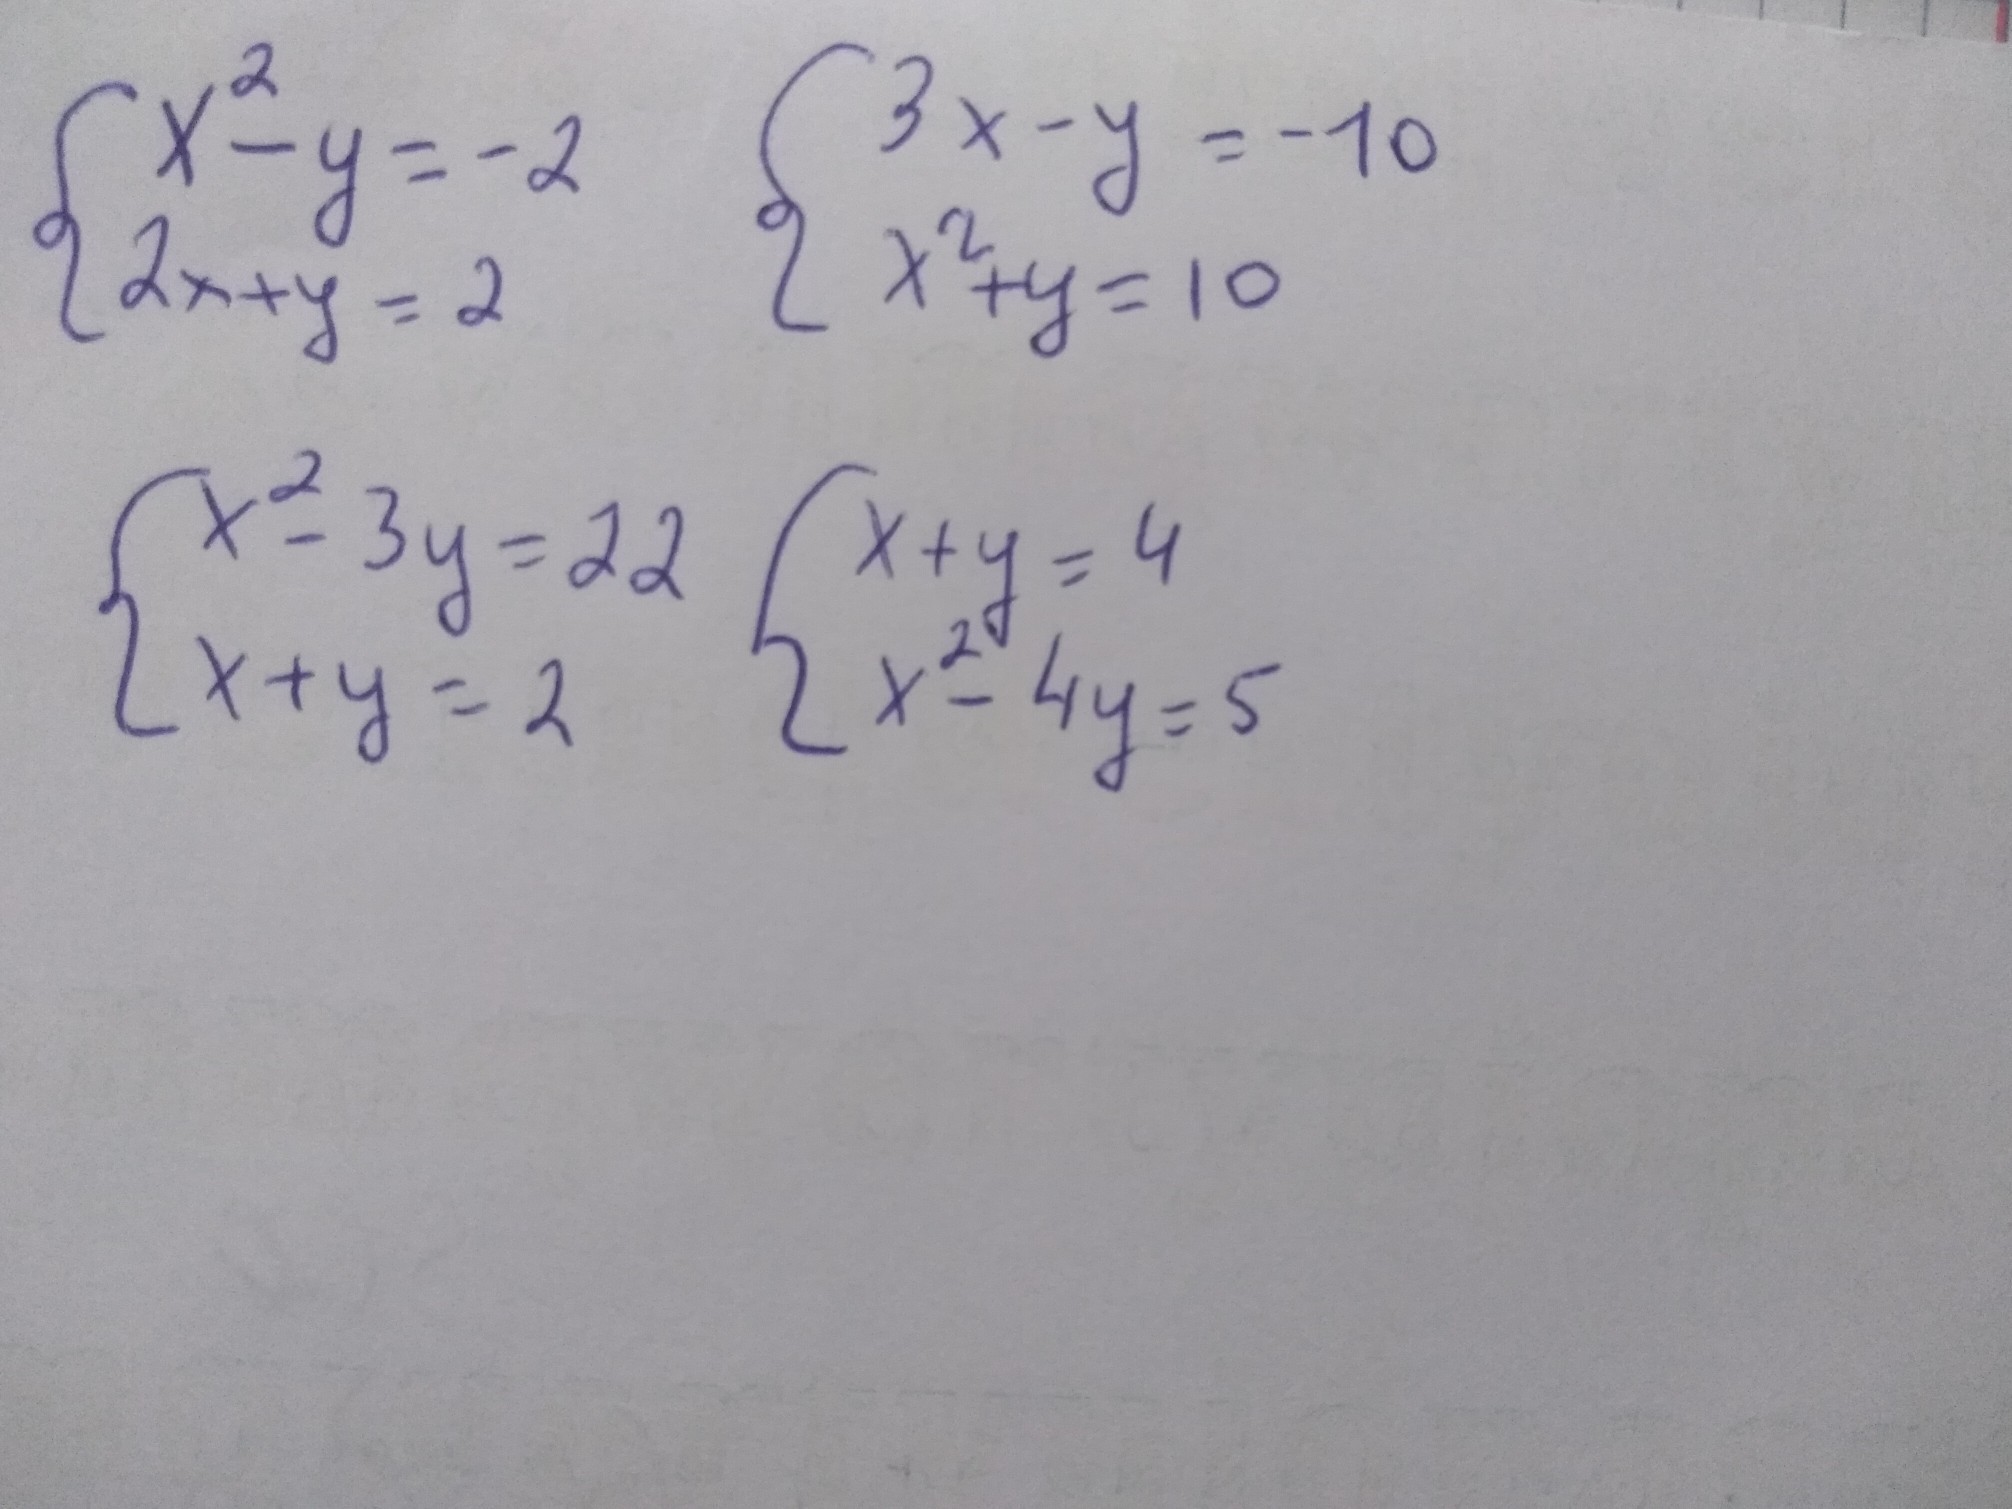 x² - y = -2
2x + y = 2
3x - y = -10
x² + y = 10
x² - 3y = 22
x + y = 2
x + y = 4
x² - 4y = 5